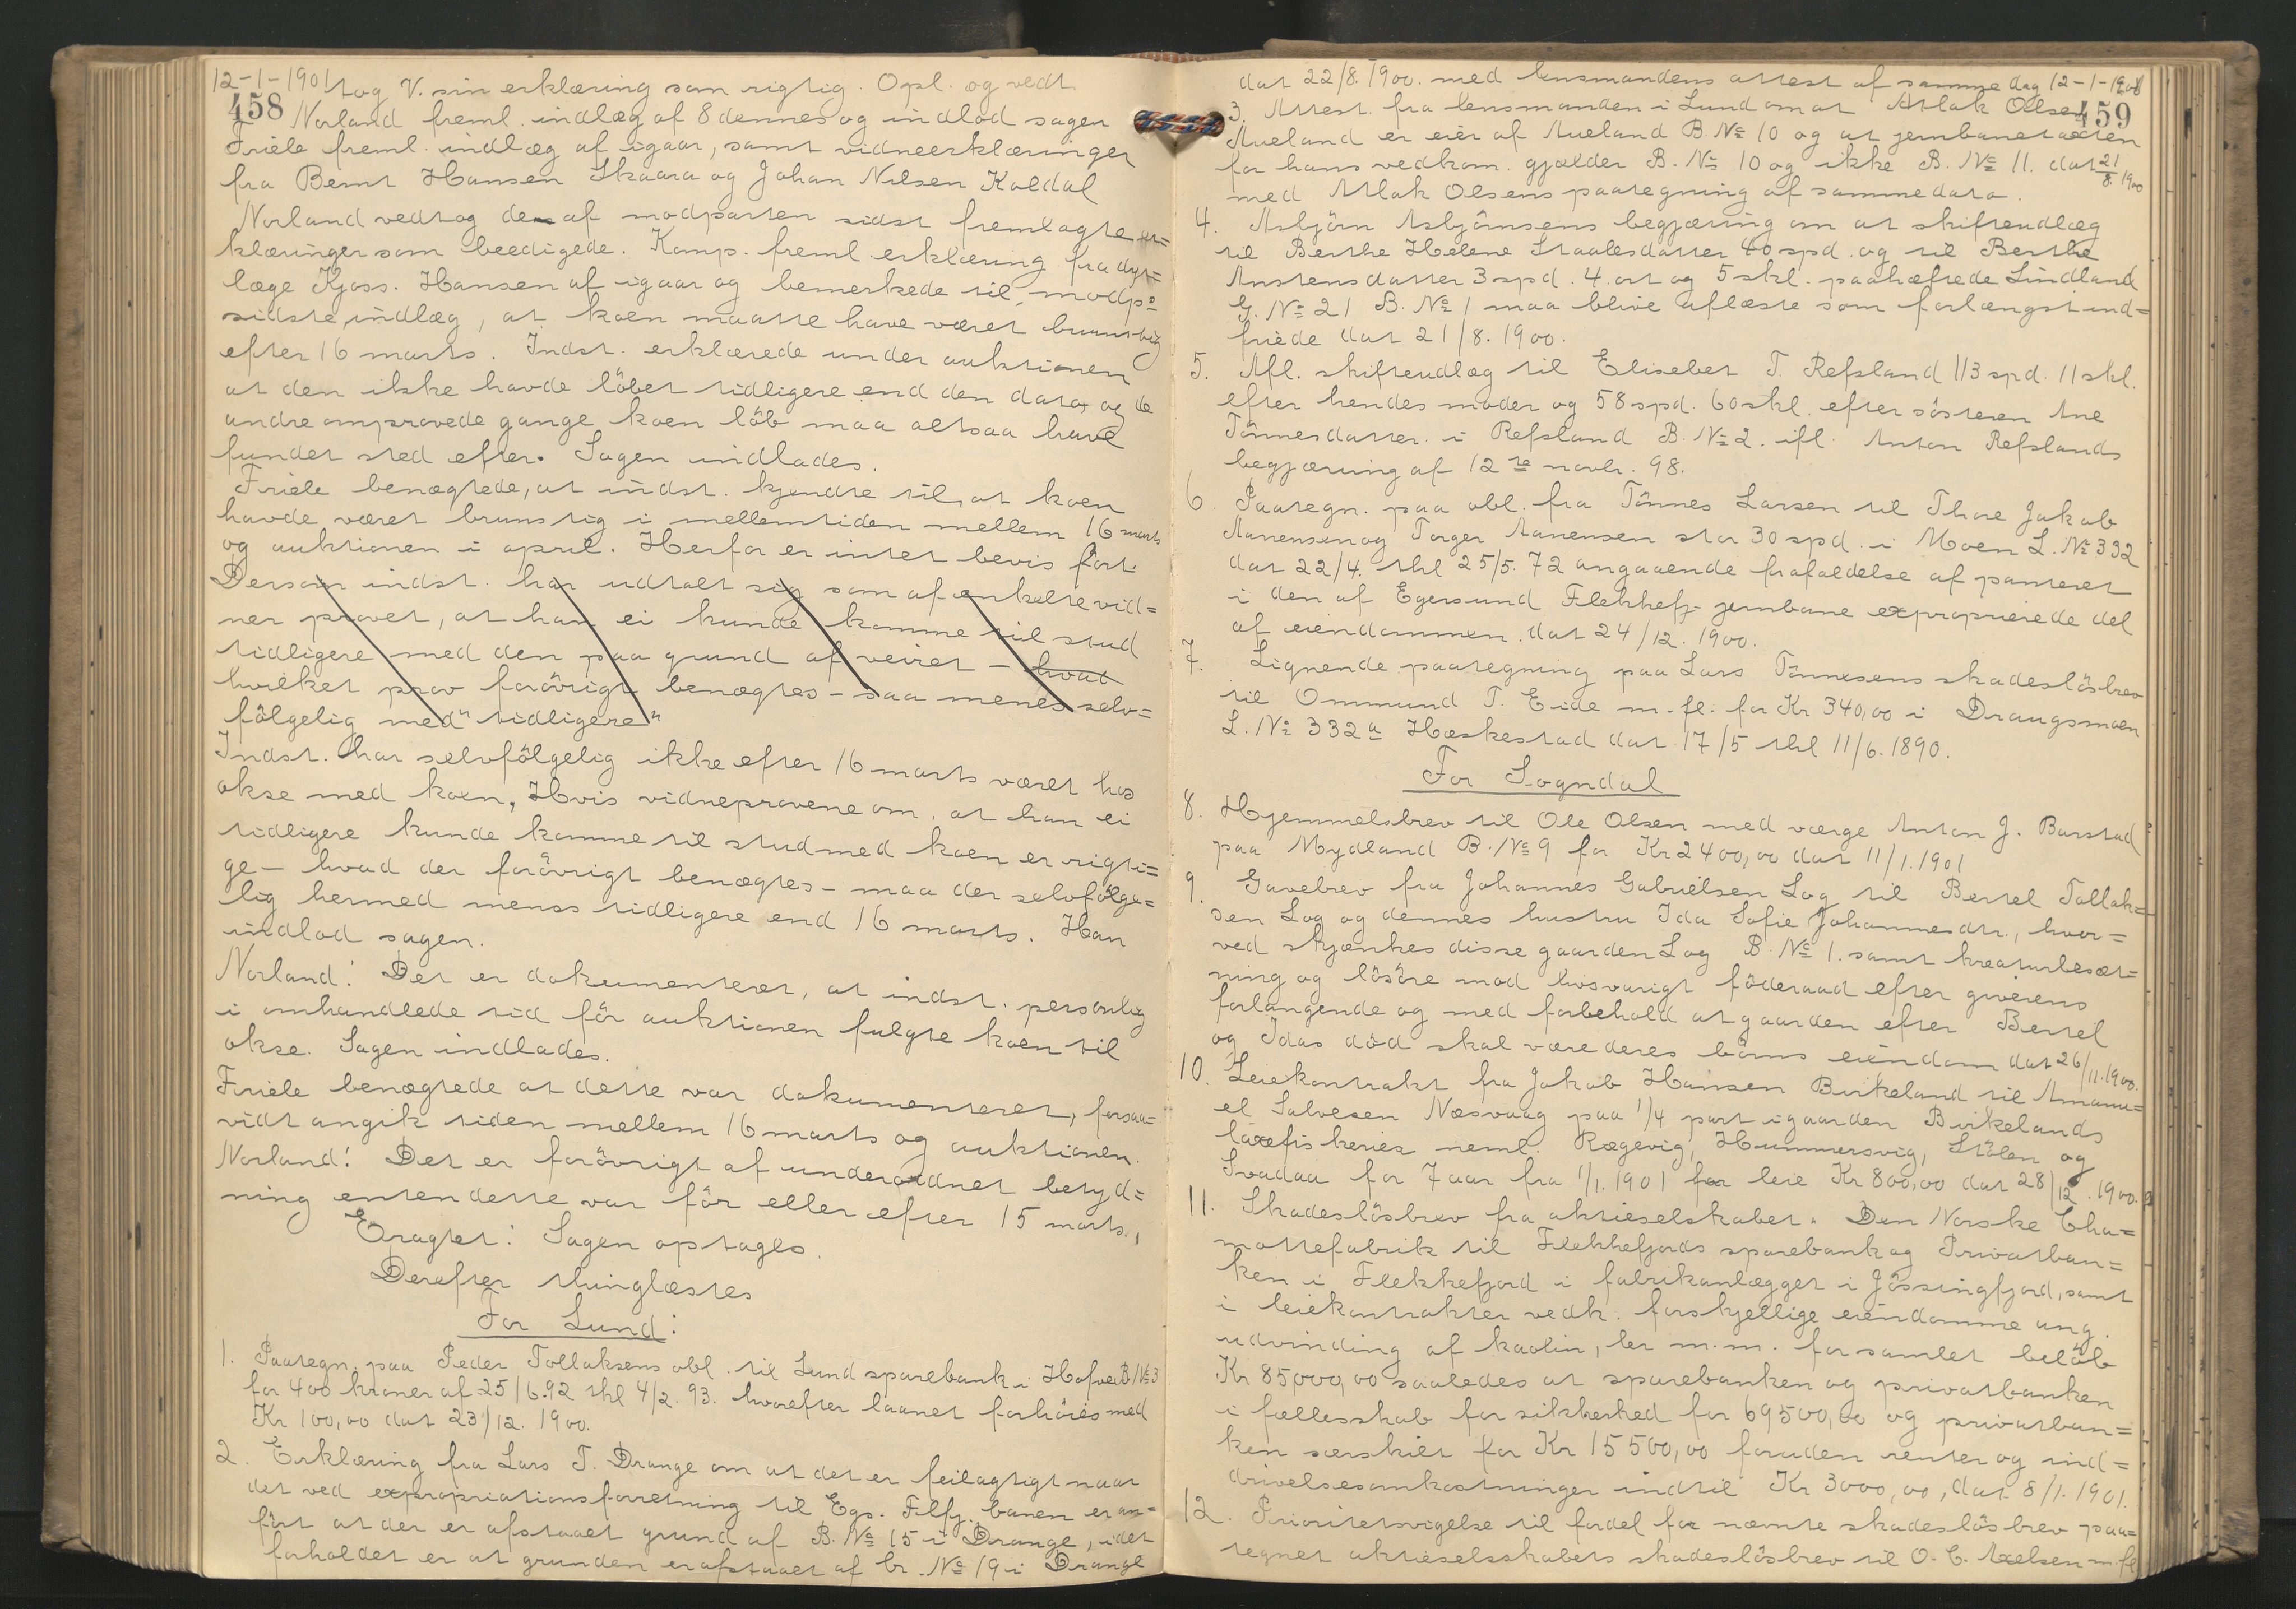 12-1-1901 tog V. sin erklæring som rigtig. Opl. og vedt
458
Norland freml. indlæg af 8 dennes og indlod sagen
Friele freml. indlæg af igaar, samt vidneerklæringer
fra Bernt Hansen Skaara og Johan Nilsen Koldal
Norland vedtog de af modparten sidst fremlagte er=
klæringer som beedigede. Komp. freml. erklæring fra dyr=
læge Kjoss. Hansen af igaar og bemerkede til modp:
sidste indlæg, at koen maatte have været brunstig
efter 16 marts. Indst. erklærede under auktionen
at den ikke havde löbet tidligere end den dato og de
andre omprovede gange koen löb maa altsaa have
fundet sted efter. Sagen indlades.
Friele benægtede, at indst. kjendte til, at koen
havde været brunstig i mellemtiden mellem 16 marts
og auktionen i april. Herfor er intet bevis fört.
Dersom indst. har udtalt sig som af enkelte vid=
ner provet, at han ei kunde komme til stud
tidligere med den paa grund af veiret – hvad
hvilket prov forövrigt benægtes – saa menes selv=
fölgelig med "tidligere"
Indst. har selvfölgelig ikke efter 16 marts været hos
okse med koen. Hvis vidneprovene om, at han ei
tidligere kunde komme til stud med koen er rigti=
ge – hvad der forövrigt benægtes – maa der selvfölge=
lig hermed menes tidligere end 16 marts. Han
indlod sagen.
Norland: Det er dokumenteret, at indst. personlig
i omhandlede tid för auktionen fulgte koen til
okse. Sagen indlades.
Friele benægtede at dette var dokumenteret, forsaa=
vidt angik tiden mellem 16 marts og auktionen.
Norland: Det er forövrigt af underordnet betyd=
ning enten dette var för eller efter 15 marts.
Eragtet: Sagen optages.
Derefter thinglæstes
For Lund:
1. Paategn. paa Peder Tollaksens obl. til Lund sparebank i Hofvei B. № 3
for 400 kroner af 25/6.92 thl 4/2.93. hvorefter laanet forhöies med
Kr 100,00 dat 23/12. 1900.
2. Erklæring fra Lars T. Drange om at det er feilagtigt naar
det ved expropriationsforretning til Egs. Flfj. banen er an=
fört at der er afstaaet grund af B. № 15 i Drange, idet
forholdet er at grunden er afstaaet af br. № 19 i Drange
dat 22/8. 1900. med lensmandens attest af samme dag 12-1-1901
459
3. Attest fra lensmanden i Lund om at Atlak Olsen
Aueland er eier af Aueland B. № 10 og at jernbanetaxten
for hans vedkom. gjælder B. № 10 og ikke B. № 11. dat 21/8 1900
med Atlak Olsens paategning af samme dato.
4. Asbjörn Asbjörnsens begjæring om at skifteudlæg
til Berthe Helene Staalesdatter 40 spd. og til Berthe
Austensdatter 3 spd. 4. ort og 5 skl. paahæftede Lindland
G. № 21 B. № 1 maa blive aflæste som forlængst ind=
friede dat 21/8. 1900.
5. Afl. skifteudlæg til Elisebet T. Refsland 113 spd. 11 skl.
efter hendes moder og 58 spd. 60 skl. efter sösteren Ane
Tönnesdatter i Refsland B. № 2. ifl. Anton Refslands
begjæring af 12te novbr. 98.
6. Paategn. paa obl. fra Tönnes Larsen til Thore Jakob
Aanensen og Torger Aanensen stor 30 spd. i Moen L. № 332
dat 22/4. thl 25/5. 72 angaaende frafaldelse af panteret
i den af Egersund Flekkefj. jernbane exproprierede del
af eiendommen. dat 24/12. 1900.
7. Lignende paategning paa Lars Tönnesens skadeslösbrev
til Ommund T. Eide m. fl. for Kr 340,00 i Draugsmoen
L. № 332a Heskestad dat 17/5 thl 11/6. 1890.
For Sogndal
8. Hjemmelsbrev til Ole Olsen med værge Anton J. Barstad
paa Mydland B. № 9 for Kr 2400,00 dat 11/1. 1901
9. Gavebrev fra Johannes Gabrielsen Log til Bertel Tollak=
sen Log og dennes hustru Ida Sofie Johannesdtr., hvor=
ved skjænkes disse gaarden Log B. № 1. samt kreaturbesæt=
ning og lösöre mod livsvarigt föderaad efter giverens
forlangende og med forbehold at gaarden efter Bertel
og Idas död skal være deres börns eiendom dat 26/11. 1900.
10. Leiekontrakt fra Jakob Hansen Birkeland til Amanu=
el Salvesen Næsvaag paa 1/4 part i gaarden Birkelands
laxefiskerier neml. Rægevig, Hummersvig, Stölen og
Svadaa for 7 aar fra 1/1. 1901 for leie Kr 800,00 dat 28/12. 1900.
11. Skadeslösbrev fra aktieselskabet. Den Norske Cha=
mottefabrik til Flekkefjords sparebank og Privatban=
ken i Flekkefjord i fabrikanlægget i Jössingfjord, samt
i leiekontrakter vedk. forskjellige eiendomme ang.
udvinding af kaolin, ler m. m. for samlet belöb
Kr 85000,00 saaledes at sparebanken og privatbanken
i fællesskab for sikkerhed for 69500,00 og privatban=
ken særskilt for Kr 15500,00 foruden renter og ind=
drivelsesomkostninger indtil Kr 3000,00, dat 8/1. 1901.
12. Prioritetsvigelse til fordel for nævnte skadeslösbrev paa=
tegnet aktieselsskabets skadeslösbrev til O. C. Axelsen m. fl